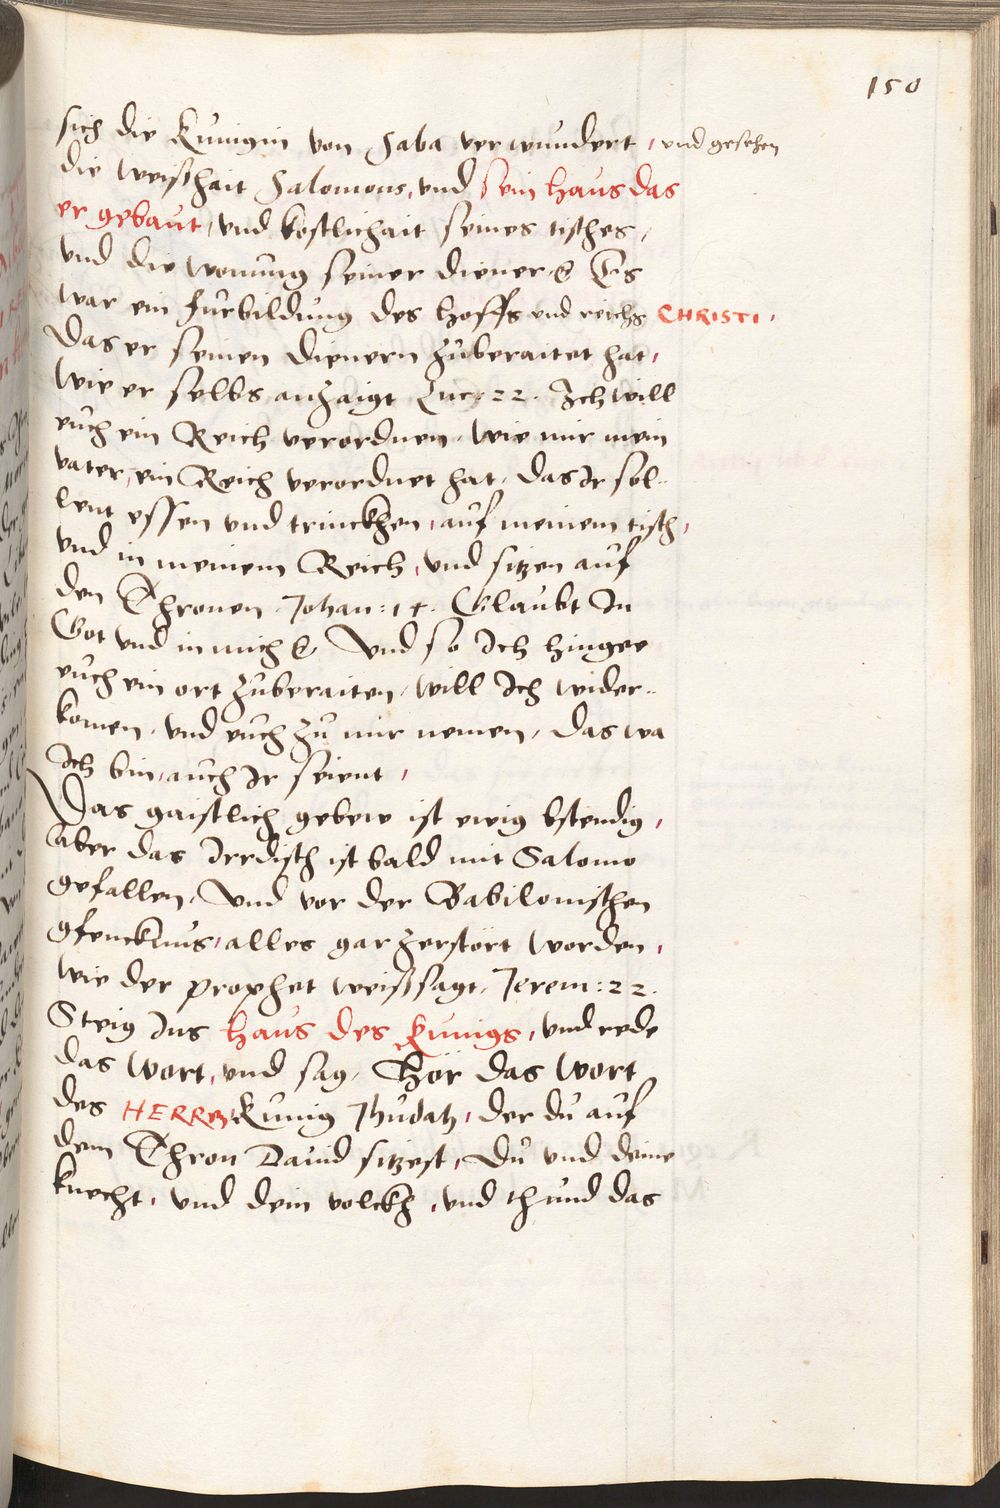 150
sich die Kunigin von Saba verwundert, und gesehen
die weißhait Salomons, und sein haus das
er gebaut, und kostlichait seines tisches,
und die wonung seiner diener &c Es
war ein furbildung des hoffs und reichs CHRISTI,
Das er seinen dienern zuberaitet hat,
wie er selbs anzaigt Luc: 22. Ich will
euch ein Reich verordnen, wie mir mein
vater, ein Reich verordnet hat, das Ir sol-
lent essen und trinckhen, auf meinem tisch,
und in meinem Reich, und sitzen auf
den Thronen. Johan: 14. Glaubt In
Got und in mich &c Und so Ich hingee
euch ein ort zuberaiten, will Ich wider-
komen, und euch zu mir nemen, das wa
Ich bin, auch Ir seient,
Das gaistlich gebew ist ewig bstendig,
aber das Irrdisch ist bald mit Salomo
gefallen, Und vor der Babilonischen
gfencknus, alles gar zerstört worden,
wie der prophet weißsagt, Jerem: 22.
Steig Ins haus des Kunigs, und rede
das wort, und sag, Hör das wort
des HERREN, Kunig Jhudah, der du auf
dem Thron Dauid sitzest, Du und deine
knecht, und dein volckh, und thund das